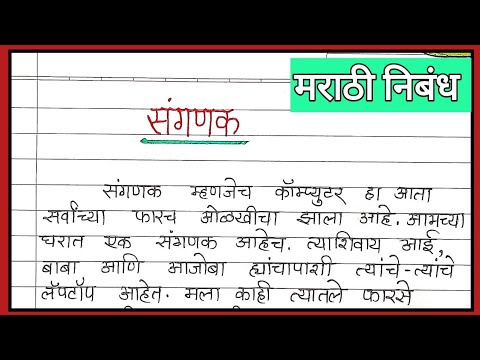 मराठी निबंध
संगणक
संगणक म्हणजेच कॉम्प्युटर हा आता
सर्वांच्या फारच ओळखीचा झाला आहे. आमच्या
घरात एक संगणक आहेच. त्याशिवाय आई,
बाबा आणि आजोबा ह्यांचापाशी त्यांचे-त्यांचे
लॅपटॉप आहेत. मला काही त्यातले फारसे